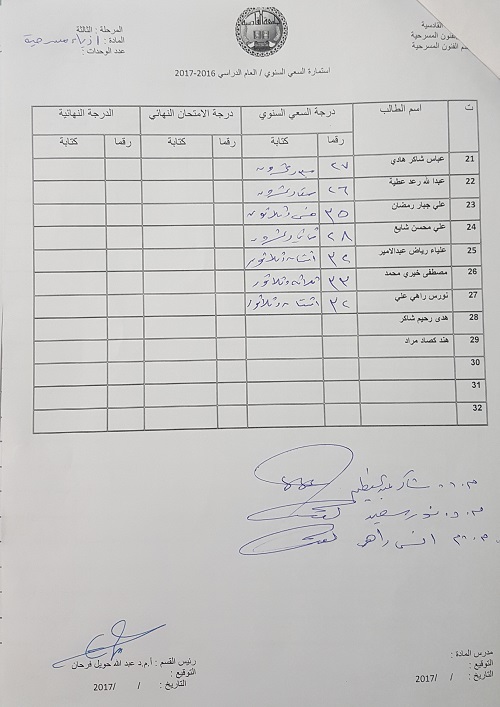 القادسية
الفنون المسرحية
سم الفنون المسرحية
المرحلة : الثالثة
المادة : ازياء مسرحية
عدد الوحدات :
استمارة السعي السنوي / العام الدراسي 2016-2017
ت اسم الطالب درجة السعي السنوي درجة الامتحان النهائي الدرجة النهائية
رقما كتابة رقما كتابة رقما كتابة
21 عباس شاكر هادي ٢٧ سبع وعشرون
22 عبدا لله رعد عطية ٢٦ ستة وعشرون
23 علي جبار رمضان ٣٥ خمس وثلاثون
24 علي محسن شايع ٢٨ ثمان وعشرون
25 علياء رياض عبدالامير ٣٢ اثنان وثلاثون
26 مصطفى خيري محمد ٣٣ ثلاثة وثلاثون
27 نورس راهي علي ٣٢ اثنان وثلاثون
28 هدى رحيم شاكر
29 هند كصاد مراد
30
31
32
شاكر عبد العظيم
م.د. نور سعيد
م.م انس راهي
مدرس المادة :
التوقيع :
التاريخ : / / 2017
رئيس القسم : أ.م.د عبد الله حويل فرحان
التوقيع :
التاريخ : / / 2017